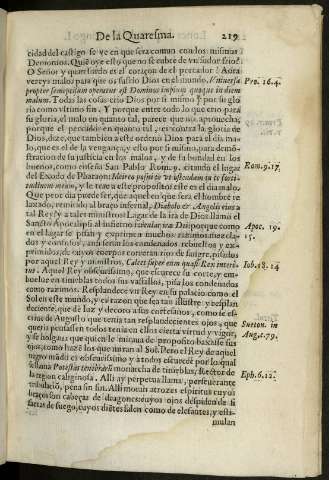 De la Quaresma. 219
cidad del castigo se ve en que sera comun con los mismos
Demonios. Quiē oye esto que no se cubre de vn sudor frio?
O Señor y quan sordo es el coraçon del pecador! Aura
verey s malos para que os sufrio Dios en el mundo. Vniuersa Pro. 16.4.
propter semetipsum operatus est Dominus impium quoque in diem
malum. Todas las cosas crio Dios por si mismo y por su glo
ria como vltimo fin. Y porque entre todo lo que crio para
su gloria, el malo en quanto tal, parece que no aprouecha,
porque el perdido en quanto tal, es contra la gloria de
Dios, dize, que tambien a este ordenò Dios para el dia ma-
lo, que es el de la vengança, y esto por si mismo, para demo-
stracion de su justicia en los malos, y de su bondad en los
buenos, como enseña San Pablo Rom. 9. citando el lugar Rom. 9.17.
del Exodo de Pharaon: Ideo te posui vt ostendam in te forti-
tudinem meam, y le trae a este proposito este es el dia malo.
Que peor dia puede ser, que aquel en que sera el hombre re
laxado, remitido al braço infernal, Diabolo & Angelis eius a
tal Rey y a tales ministros! Lugar de la ira de Dios llamò el
Sancto Apocalipsi al infierno Dei porque como Apoc. 19.
en el lagar se pisan y exprimen muchos razimos mezcla- 15.
dos y confusos, ansi seran los condenados rebueltos y ex-
primidos, de cuyos cuerpos correran rios de sangre, pisados
por aquel Rey y ministros. Calcet super eum quasi Rex interi- Iob. 18.14
tus. Aquel Rey obscurissimo, que escurece su corte, y em-
buelue en tinieblas todos sus vassallos, pisa los condenados
como razimos. Resplandece vn Rey en su palacio como el
Sol en este mundo, y es razon que sea tan illustre y resplan
deciente, que de luz y decoro a sus cortesanos, como se es-
criue de Augusto que tenia tan resplandecientes ojos, que
queria pensassen todos tenia en ellos cierta virtud y vigor, Sueton. in
y se holgaua que quien le miraua de proposito baxasse sus Aug. c. 79.
ojos, como haze los que miran al Sol. Pero el Rey de aquel
negro mūdo es obscurissimo y a todos escurece por lo qual
se llama Potestas tenebrarū monarcha de tinieblas, Rector de Eph. 6.12.
la region caliginosa. Alli ay perpetua llama, perseuerante
tribulaciō, pena sin fin. Alli moran atroces espiritus cuyos
braços son cabeças de dragones: cuyos ojos despiden si
saetas de fuego, cuyos diētes salen como de elefantes, y esti-
mulan